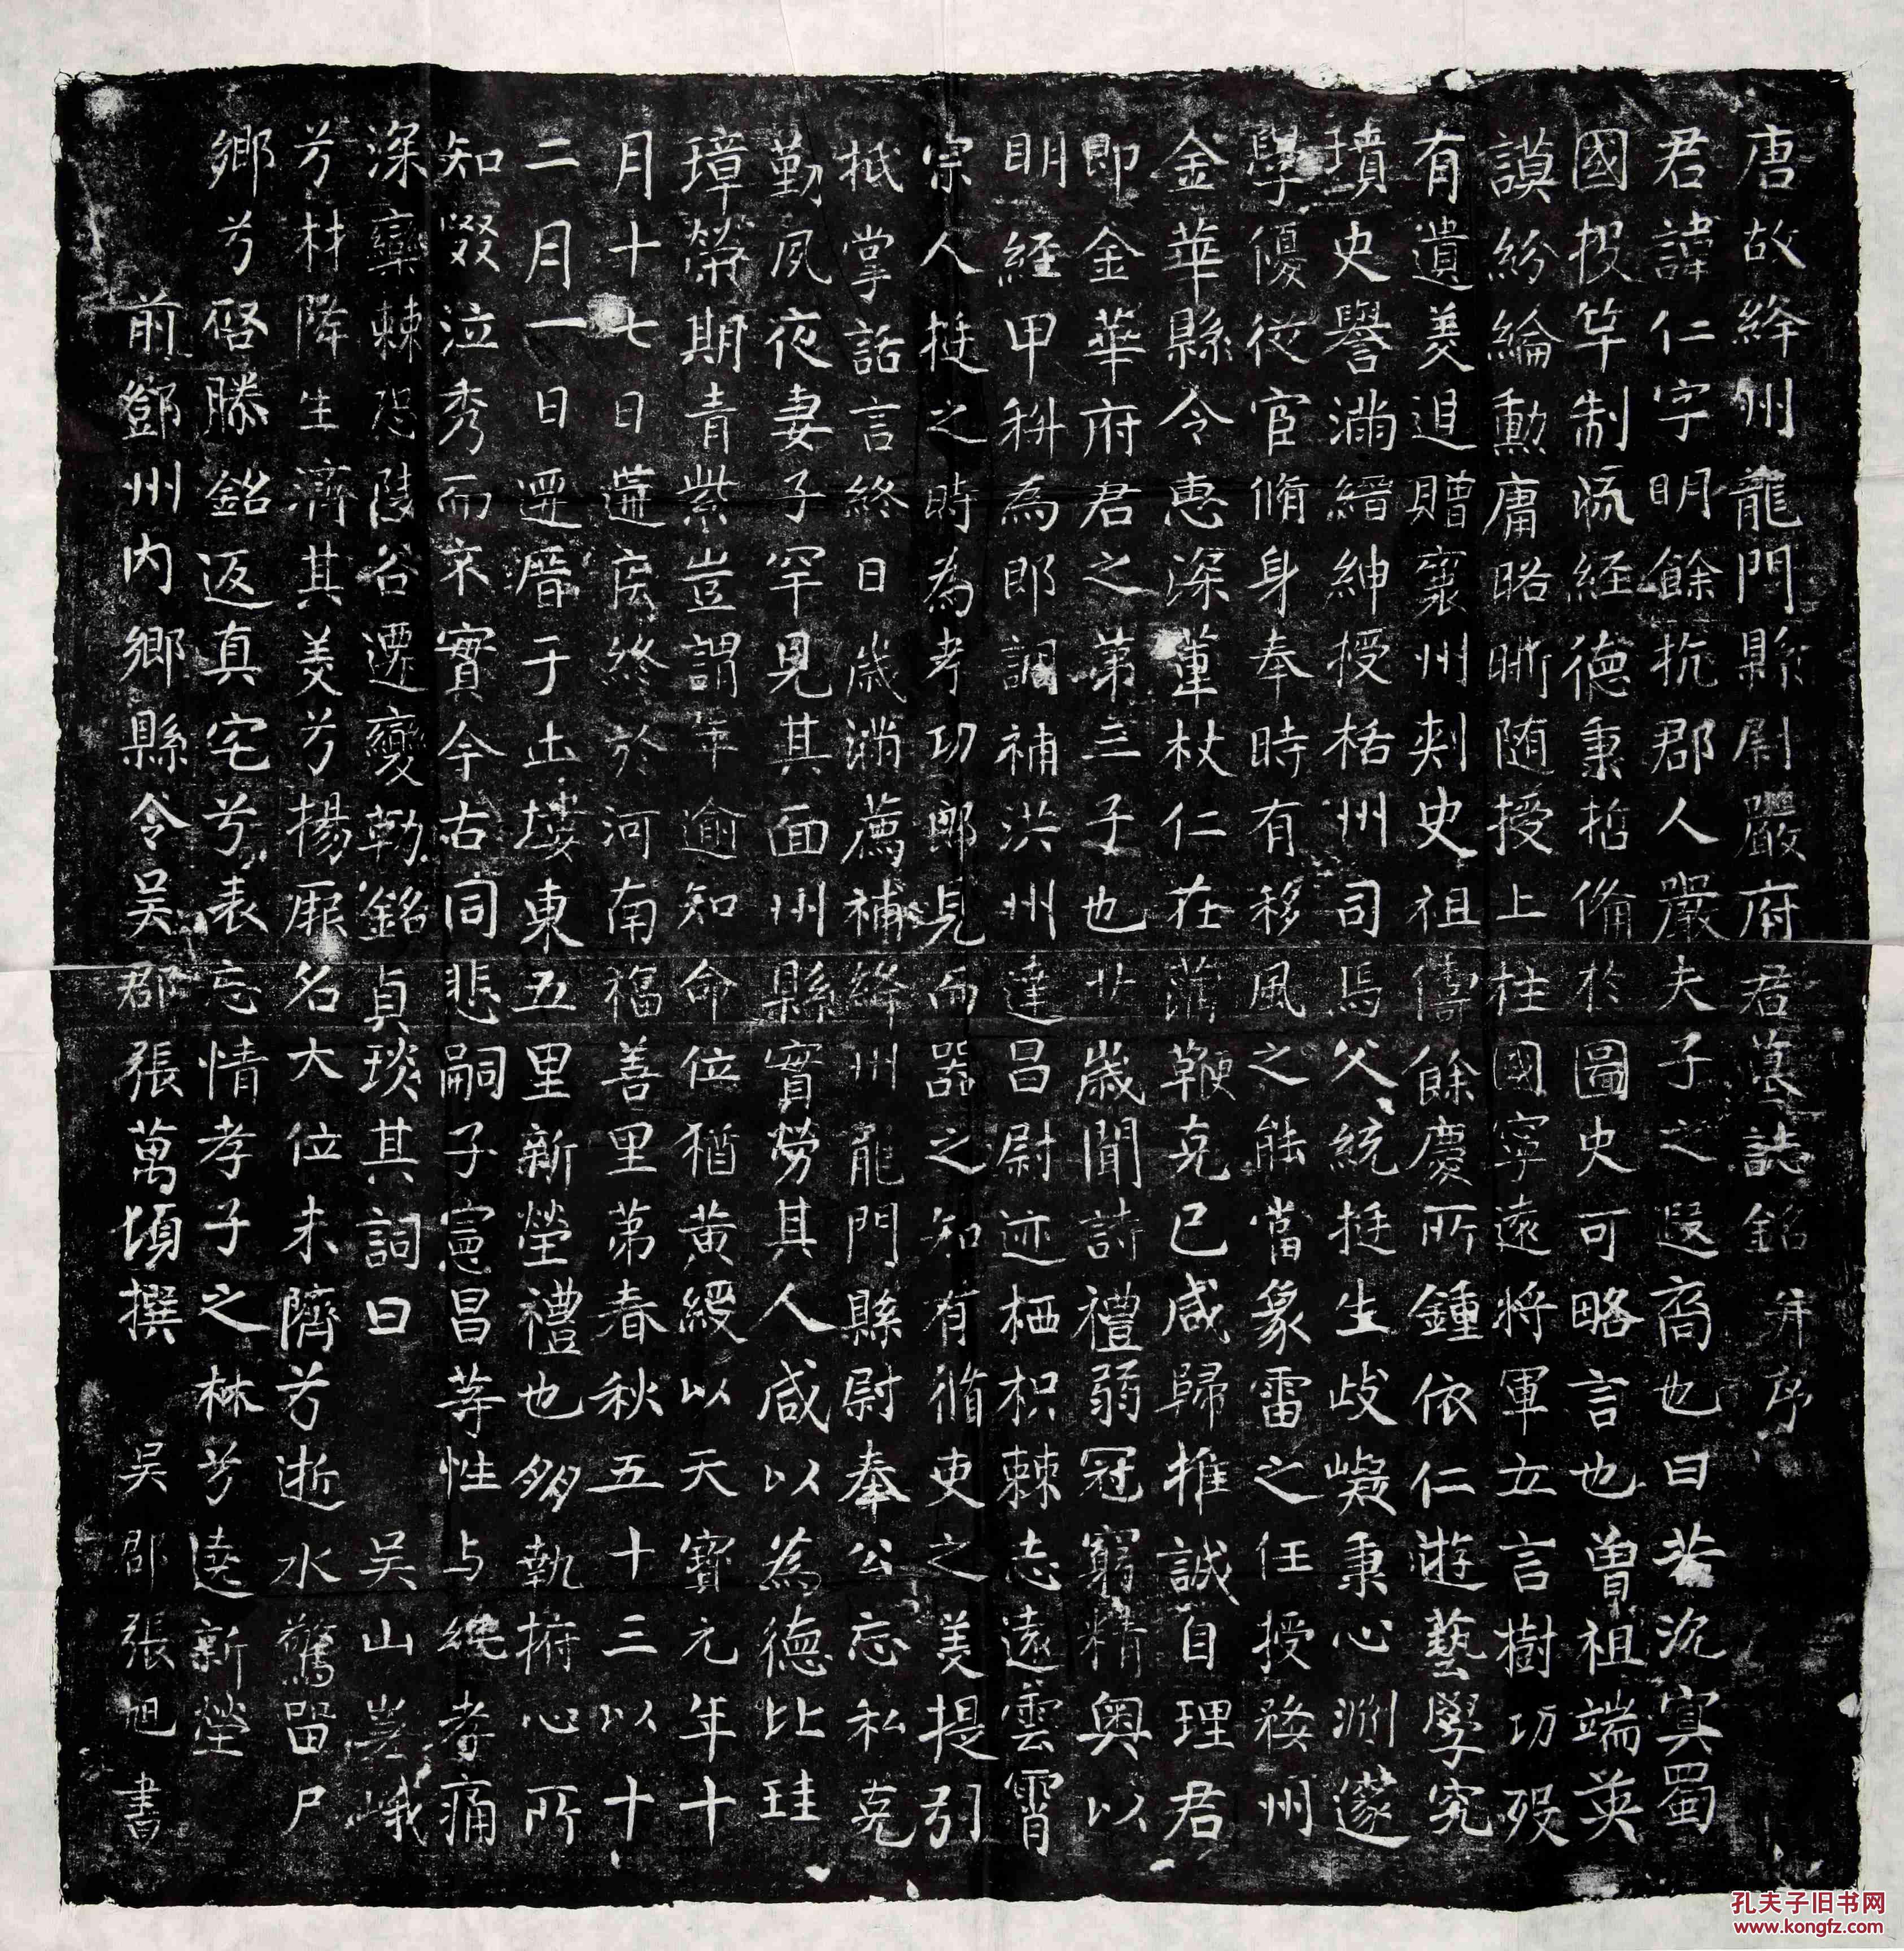 唐故絳州龍門縣尉嚴府君墓誌銘并序
君諱仁字明餘杭郡人嚴夫子之遐裔也曰若沉冥蜀
國投竿制流經德秉哲備於圖史可略言也曾祖端英
謨紛綸勳庸昭晣随授上柱國寧遠將軍立言樹功歿
有遺美追贈襄州刾史祖儔餘慶所鍾依仁遊藝學究
墳史譽滿縉紳授栝州司馬父統挺生歧嶷秉心淵邃
學優從官脩身奉時有移風之能當象雷之任授婺州
金華縣令惠深葦杖仁在蒲鞭克己咸歸推誠自理君
即金華府君之第三子也丱歲聞詩禮弱冠窮精奥以
明經甲科為郎調補洪州達昌尉迹栖枳棘志遠雲霄
宗人挺之時為考功郎見而器之知有脩吏之美提引
抵掌話言終日歲滿薦補絳州龍門縣尉奉公忘私克
勤夙夜妻子罕見其面州縣實勞其人咸以為德比珪
璋榮期青紫豈謂年逾知命位猶黄綬以天寶元年十
月十七日遘疾終於河南福善里第春秋五十三以十
二月一日遷厝于土塿東五里新塋禮也鄰執捬心所
知啜泣秀而不實今古同悲嗣子憲昌等性与純孝痛
深欒棘恐陵谷遷變勒銘貞琰其詞曰 吴山岩峨
兮材降生濟其美兮揚厥名大位未隮兮逝水驚留尸
鄉兮啓滕銘返真宅兮表忘情孝子之林兮遶新塋
前鄧州内鄉縣令吴郡張萬頃撰 吴郡張旭書
孔夫子旧书网
www.kongfz.com